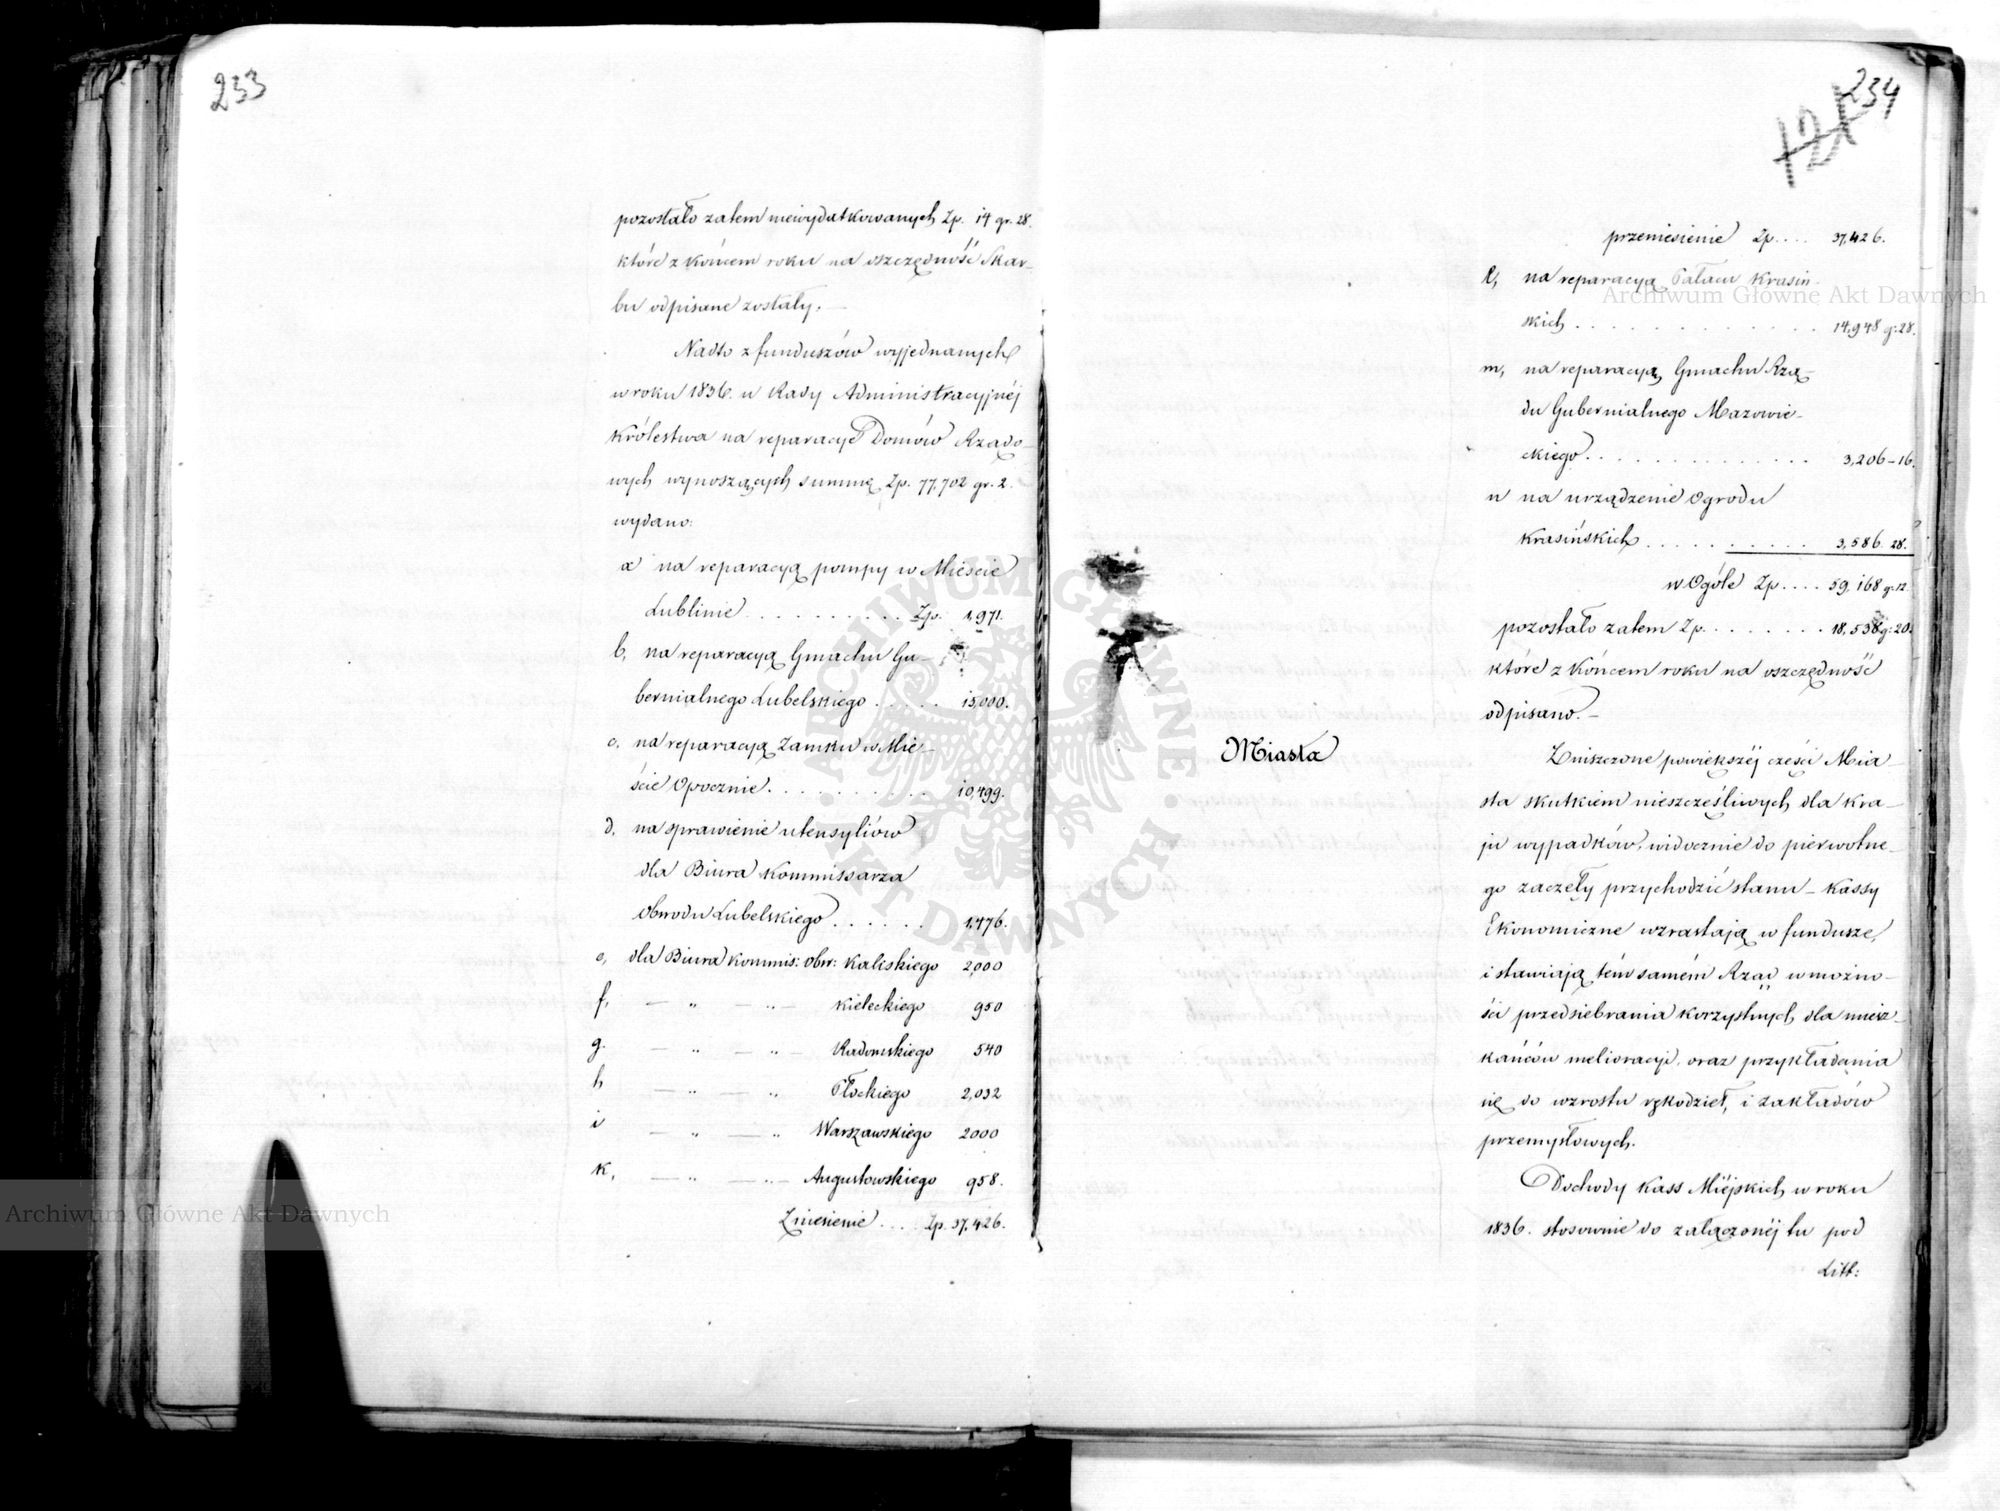 233
pozostało zatem niewydatkowanych Zp. 14 gr. 28.
które z końcem roku na oszczędność Skar-
bu odpisane zostały. —
Nadto z funduszów wyjednanych
w roku 1836. u Rady Administracyjnéj
Królestwa na reparacye Domów Rządo-
wych wynoszących summę Zp. 77,702 gr. 2.
wydano:
a na reparacyą pompy w Mieście
Lublinie . . . . . . . . . . Zp. 1,971.
b, na reparacyą Gmachu Gu-
bernialnego Lubelskiego . . . . . 15,000.
c, na reparacyą Zamku w Mie-
ście Opocznie . . . . . . . . . . 10,499.
d, na sprawienie utensyliów
dla Biura Kommissarza
Obwodu Lubelskiego . . . . . . 1,476.
e, dla Biura Kommis: Obw: Kaliskiego 2,000
f, — „ — „ — Kieleckiego 950
g. — „ — „ — Radomskiego 540
h — „ — „ Płockiego 2,032
i — „ — „ Warszawskiego 2000
k, — „ — „ — Augustowskiego 958.
Zniesienie . . . . Zp. 37,426.
234
121
przeniesienie Zp . . . . 37,426.
l, na reparacyą Pałacu Krasiń-
skich . . . . . . . . . . . . . 14,948 g: 28.
m, na reparacyą Gmachu Rzą-
du Gubernialnego Mazowie-
ckiego . . . . . . . . . . . . . 3,206 – 16.
n na urządzenie Ogrodu
Krasińskich . . . . . . . . . . 3,586. 28.
w Ogóle Zp . . . . 59,168 g: 12.
pozostało zatem Zp . . . . . . . 18,533 g: 20.
które z końcem roku na oszczędność
odpisano. —
Miasta
Zniszczone powiększéj części Mia-
sta skutkiem nieszczęśliwych dla kra-
ju wypadków, widocznie do pierwotne-
go zaczęły przychodzić stanu – Kassy
Ekonomiczne wzrastają w fundusze,
i stawiają tém samém Rząd w możno-
ści przedsiębrania korzystnych dla miesz-
kańców melioracyi, oraz przykładania
się do wzrostu rękodzieł, i zakładów
przemysłowych.
Dochody Kass Miéjskich w roku
1836. stosownie do załączonéj tu pod
Litt:
Archiwum Główne Akt Dawnych
Archiwum Główne Akt Dawnych
ARCHIWUM GŁÓWNE AKT DAWNYCH